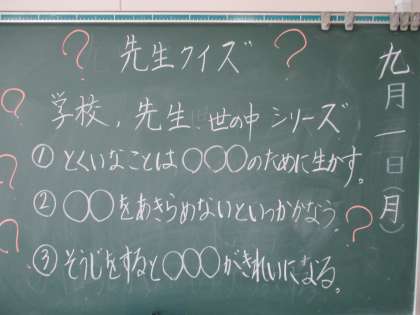 先生クイズ
学校、先生、世の中シリーズ
①とくいなことは○○○のために生かす。
②○○をあきらめないといつかかなう。
③そうじをすると○○○がきれいになる。
九月一日(月)